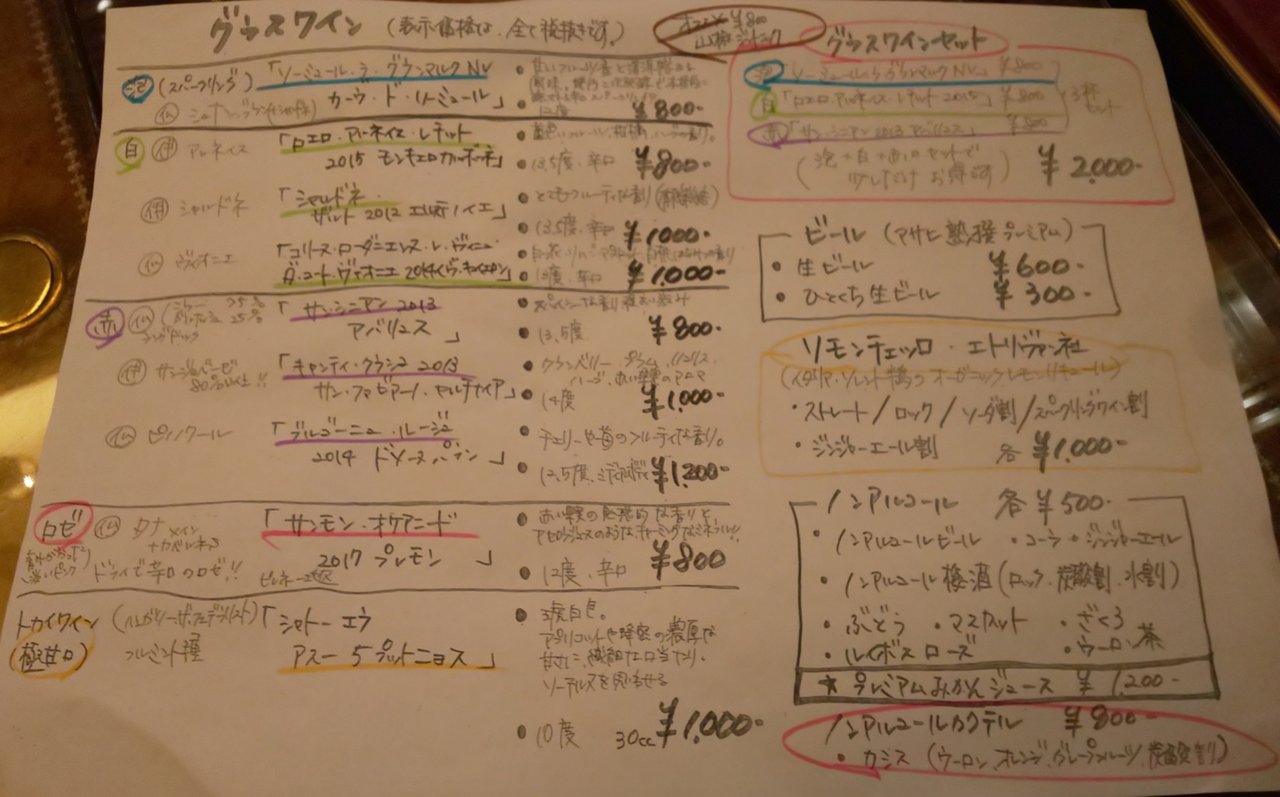 グラスワイン (表示価格は、全て税抜きです。)
オススメ ¥800
山椒ジントニック
泡 (スパークリング) 「ソーミュール・ラ・グランマルク NV
カーヴ・ド・ソーミュール」
仏
12度 ¥800-
白 伊 アルネイス 「ロエロ・アルネイス・レチット
2015 モンキエロカルボーネ」
13.5度・辛口 ¥800-
伊 シャルドネ 「シャルドネ
2012
とてもフルーティな香り
13.5度・辛口 ¥1000-
仏 ヴィオニエ 「コリース・ローダニエンヌ・レ・ヴィニュ
2014
13度、辛口 ¥1,000-
赤 仏 75%
25%
「サン・シニアン 2013
アバリュス」
13.5度 ¥800-
伊 サンジョベーゼ
80%以上!!
「キャンティ・クラシコ 2013
サン・ファビアーノ・カルチナイア」
クランベリー プラム
14度 ¥1,000-
仏 ピノノワール 「ブルゴーニュ・ルージュ
2014 ドメーヌパラン」
チェリーや苺のフルーティな香り。
12.5度、ミディアムボディ ¥1,200-
ロゼ 仏 タナ メイン
ドライで辛口のロゼ!!
「サンモン・オケアニード
2017 プレモン」
赤い果実の魅惑的な香りと
12度・辛口 ¥800
トカイワイン
(極甘口)
フルミント種
「シャトー エラ
アスー 5プットニョス」
琥珀色。
アプリコットや蜂蜜の濃厚な
甘さに、繊細な口当たり。
ソーテルヌを思わせる
10度 30cc ¥1,000-
グラスワインセット
泡「ソーミュール・ラ・グランマルク NV」¥800
白「ロエロ・アルネイス・レチット 2015」¥800
赤「サン・シニアン 2013 アバリュス」¥800
3杯
セット
(泡+白+赤のセットで
少しだけ お得です) ¥2,000-
ビール (アサヒ 熟撰プレミアム)
・生ビール ¥600-
・ひとくち生ビール ¥300-
リモンチェッロ・エトリヴァン社
(イタリア・ソレント
オーガニックレモンリキュール)
・ストレート/ロック/ソーダ割/スパークリングワイン割
・ジンジャーエール割 各 ¥1,000-
ノンアルコール 各 ¥500-
・ノンアルコールビール ・コーラ ・ジンジャーエール
・ノンアルコール梅酒 (ロック、炭酸割、水割)
・ぶどう ・マスカット ・ざくろ
・ルイボス ローズ ・ウーロン茶
★ プレミアムみかんジュース ¥1,200-
ノンアルコールカクテル ¥800-
・カシス (ウーロン、オレンジ、グレープフルーツ、炭酸割)